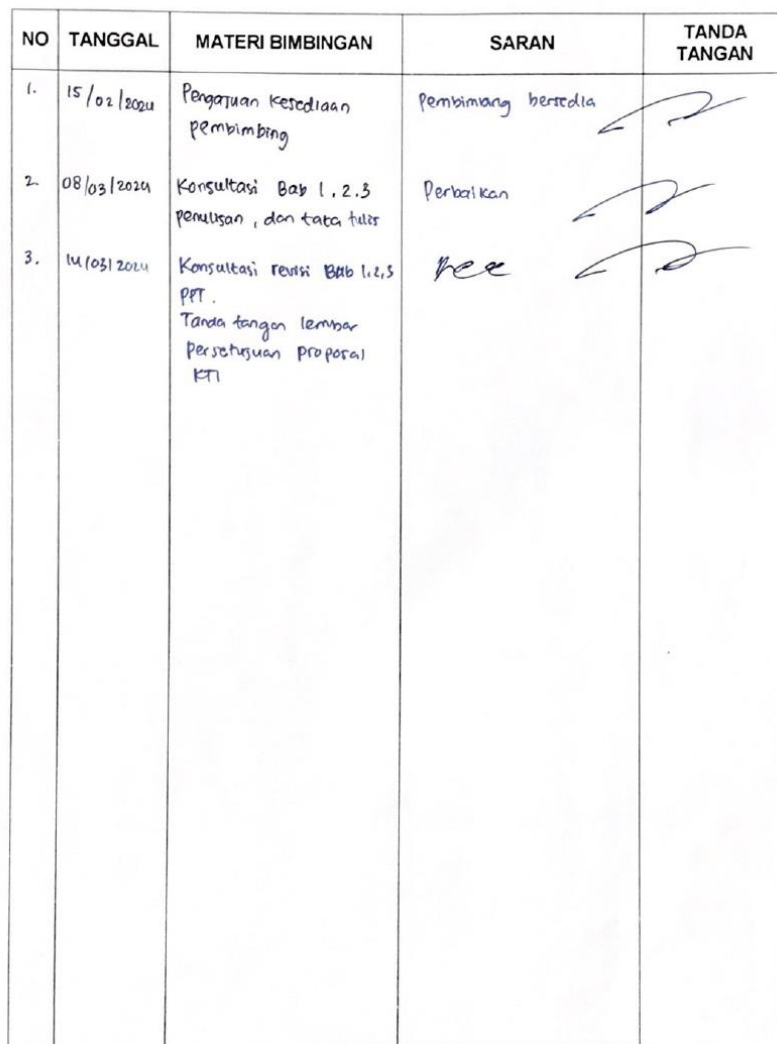 NO TANGGAL MATERI BIMBINGAN SARAN TANDA TANGAN
1. 15/02/2024 Pengajuan Kesediaan Pembimbing bersedia
pembimbing
2. 08/03/2024 Konsultasi Bab 1, 2.3 Perbaikan
penulisan, dan tata tulis
3. 14/03/2024 Konsultasi revisi Bab 1,2,3
PPT.
Tanda tangan lembar
persetujuan proposal
KTI